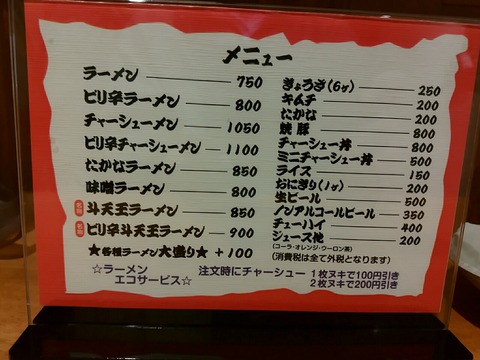 メニュー
ラーメン 750
ピリ辛ラーメン 800
チャーシューメン 1050
ピリ辛チャーシューメン 1100
たかなラーメン 850
味噌ラーメン 800
名物 斗天王ラーメン 850
名物 ピリ辛斗天王ラーメン 900
★各種ラーメン大盛り★ +100
ぎょうざ(6ヶ) 250
キムチ 200
たかな 200
焼豚 800
チャーシュー丼 800
ミニチャーシュー丼 500
ライス 150
おにぎり(1ヶ) 200
生ビール 500
ノンアルコールビール 350
チューハイ 400
ジュース他 200
(コーラ・オレンジ・ウーロン茶)
(消費税は全て外税となります)
☆ラーメン
エコサービス☆
注文時にチャーシュー 1枚ヌキで100円引き
2枚ヌキで200円引き